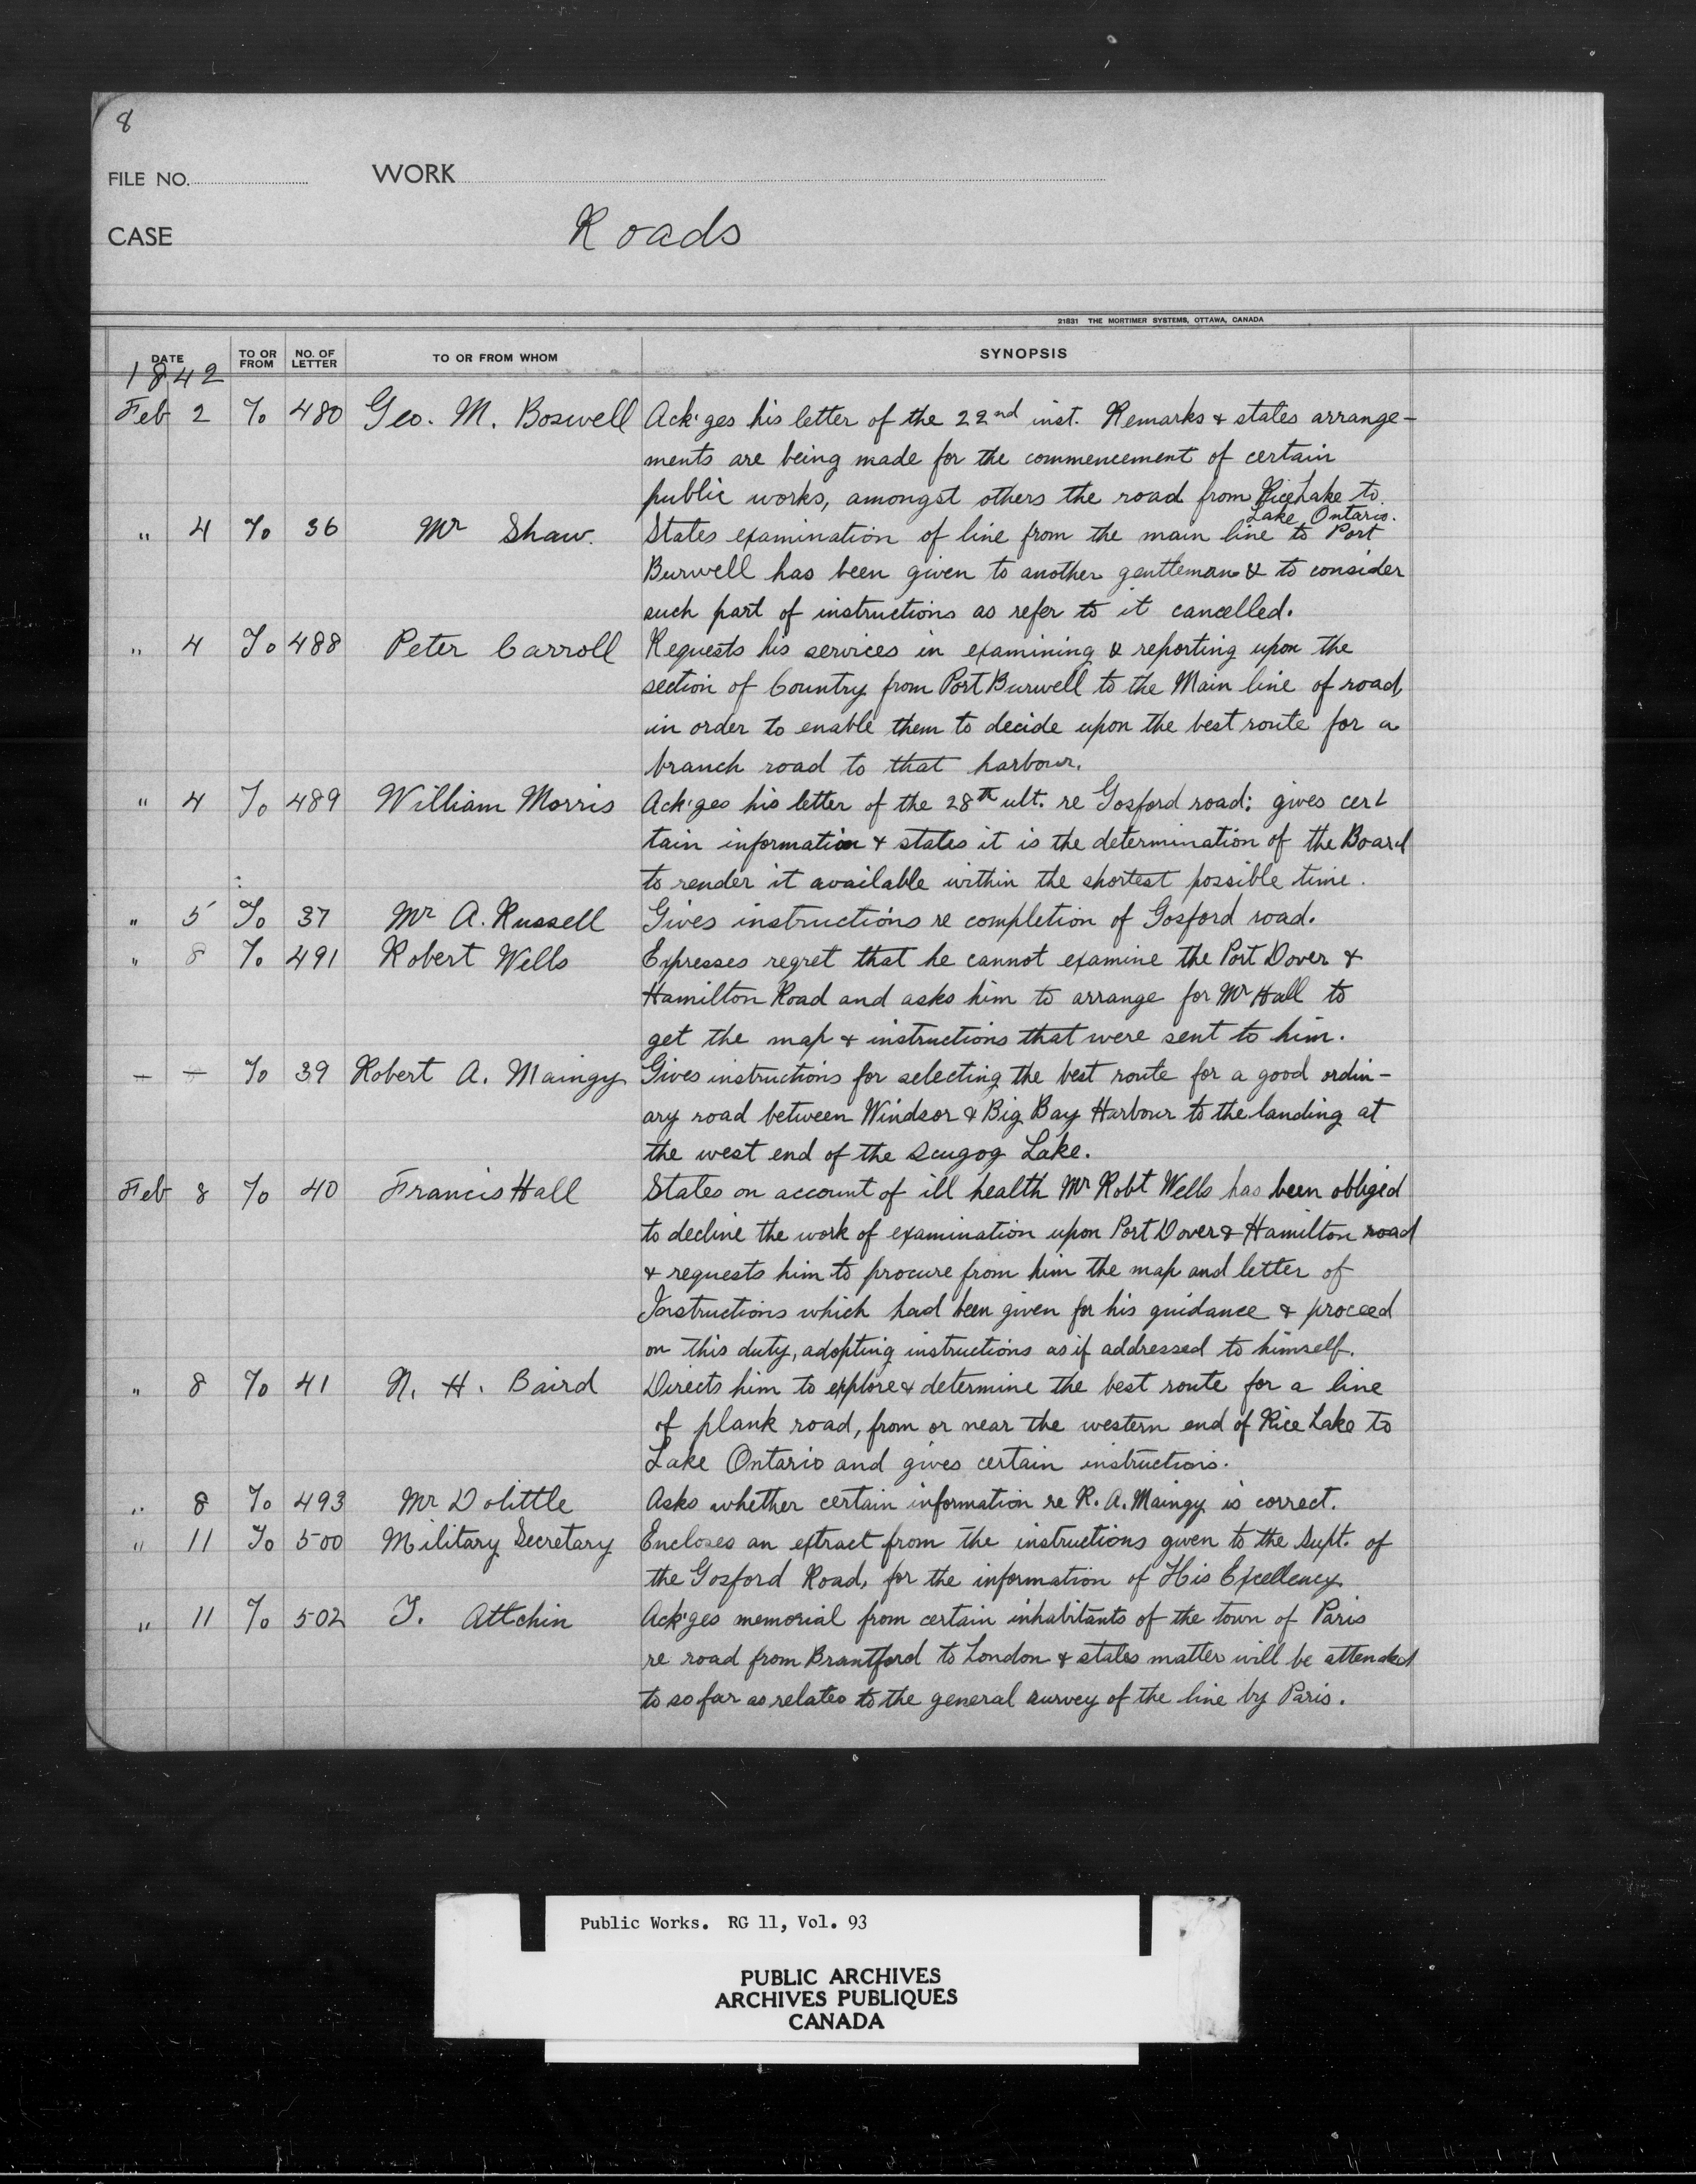 8
FILE NO. WORK
CASE Roads
21831 THE MORTIMER SYSTEMS, OTTAWA, CANADA
DATE TO OR FROM NO. OF LETTER TO OR FROM WHOM SYNOPSIS
1842
Feb 2 To 480 Geo. M. Boswell Ack'ges his letter of the 22nd inst. Remarks & states arrange-
ments are being made for the commencement of certain
public works, amongst others the road from Rice Lake to
Lake Ontario.
" 4 To 36 Mr Shaw. States examination of line from the main line to Port
Burwell has been given to another gentleman & to consider
such part of instructions as refer to it cancelled.
" 4 To 488 Peter Carroll Requests his services in examining & reporting upon the
section of Country from Port Burwell to the Main line of road,
in order to enable them to decide upon the best route for a
branch road to that harbour.
" 4 To 489 William Morris Ack'ges his letter of the 28th ult. re Gosford road: gives cer
tain information & states it is the determination of the Board
to render it available within the shortest possible time.
" 5 To 37 Mr A. Russell Gives instructions re completion of Gosford road.
" 8 To 491 Robert Wells Expresses regret that he cannot examine the Port Dover &
Hamilton Road and asks him to arrange for Mr Hall to
get the map & instructions that were sent to him.
— — To 39 Robert A. Maingy Gives instructions for selecting the best route for a good ordin-
ary road between Windsor & Big Bay Harbour to the landing at
the west end of the Scugog Lake.
Feb 8 To 40 Francis Hall States on account of ill health Mr Robt Wells has been obliged
to decline the work of examination upon Port Dover & Hamilton road
& requests him to procure from him the map and letter of
Instructions which had been given for his guidance & proceed
on this duty, adopting instructions as if addressed to himself.
" 8 To 41 N. H. Baird Directs him to explore & determine the best route for a line
of plank road, from or near the western end of Rice Lake to
Lake Ontario and gives certain instructions.
" 8 To 493 Mr Dolittle Asks whether certain information re R. A. Maingy is correct.
" 11 To 500 Military Secretary Encloses an extract from the instructions given to the Supt. of
the Gosford Road, for the information of His Excellency
" 11 To 502 T. Attchin Ack'ges memorial from certain inhabitants of the town of Paris
re road from Brantford to London & states matter will be attended
to so far as relates to the general survey of the line by Paris.
Public Works. RG 11, Vol. 93
PUBLIC ARCHIVES
ARCHIVES PUBLIQUES
CANADA